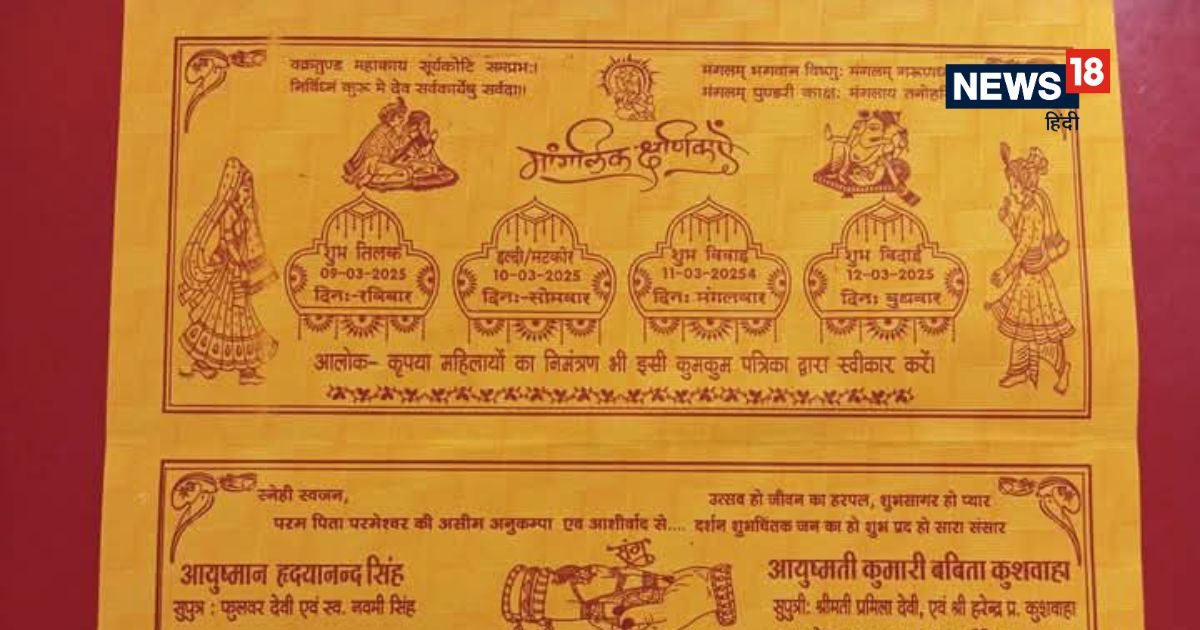 वक्रतुण्ड महाकाय सूर्यकोटि समप्रभः।
निर्विघ्नं कुरू मे देव सर्वकार्येषु सर्वदा॥
मंगलम् भगवान विष्णुः मंगलम्
मंगलम् पुण्डरी काक्षः मंगलाय
NEWS 18
हिंदी
मांगलिक क्षणिकाएँ
शुभ तिलक
09-03-2025
दिनः-रविवार
हल्दी/मटकोर
10-03-2025
दिनः-सोमवार
शुभ विवाह
11-03-20254
दिनः मंगलवार
शुभ विदाई
12-03-2025
दिनः बुधवार
आलोक- कृपया महिलायों का निमंत्रण भी इसी कुमकुम पत्रिका द्वारा स्वीकार करें।
स्नेही स्वजन,
परम पिता परमेश्वर की असीम अनुकम्पा एवं आशीर्वाद से....
उत्सव हो जीवन का हरपल, शुभसागर हो प्यार
दर्शन शुभचिंतक जन का हो शुभ प्रद हो सारा संसार
आयुष्मान हृदयानन्द सिंह
सुपुत्र : फुलवर देवी एवं स्व. नवमी सिंह
संग
आयुष्मती कुमारी बबिता कुशवाहा
सुपुत्री: श्रीमती प्रमिला देवी, एवं श्री हरेन्द्र प्र. कुशवाहा